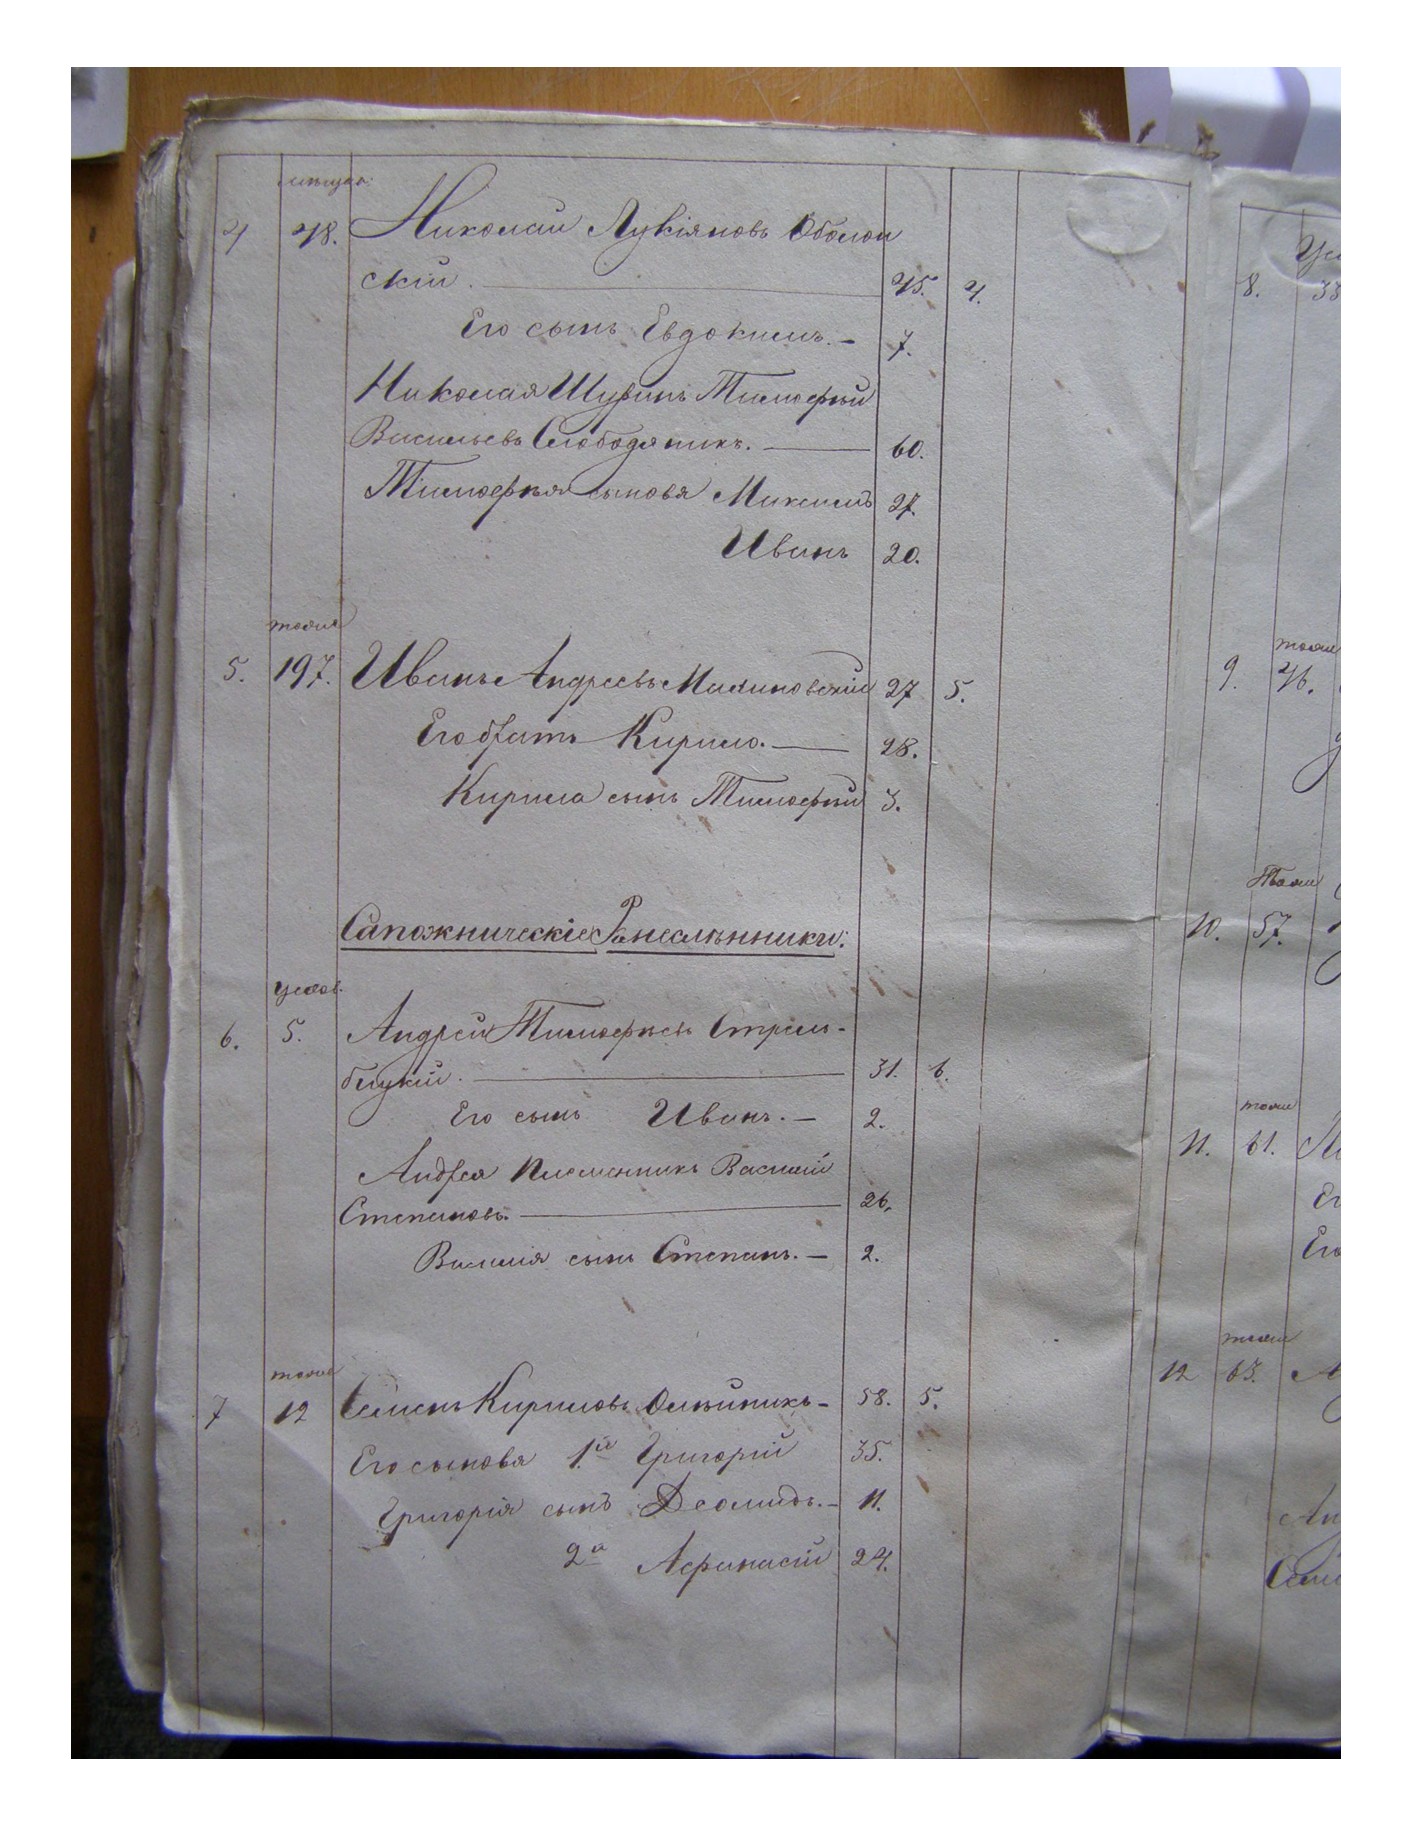 4 48. Николай Лукіяновъ Оболон
скій. 45. 4.
Его сынъ Евдокимъ. — 7.
Николая Шуринъ Тимофѣй
Васильевъ Слободяникъ. 60.
Тимофѣя сыновья Максимъ 27.
Иванъ 20.
тоже
5. 197. Иванъ Андреевъ Малиновскій 27 5.
Его братъ Кирило. — 28.
Кирила сынъ Тимофѣй 3.
Сапожническіе Ремесленники:
6. 5. Андрей Тимофѣевъ Стрель-
бицкій. 31. 6.
Его сынъ Иванъ. — 2.
Андрея племенникъ Василій
Степановъ. 26.
Василія сынъ Степанъ. — 2.
тоже
7 12 Семенъ Кириловъ Олѣйникъ — 58. 5.
Его сыновья 1й Григорій 35.
Григорія сынъ Деомидъ. — 11.
2й Афанасій 24.
8. 33
тоже
9. 46.
Тоже
10. 57.
тоже
11. 61.
Его
тоже
12 63.